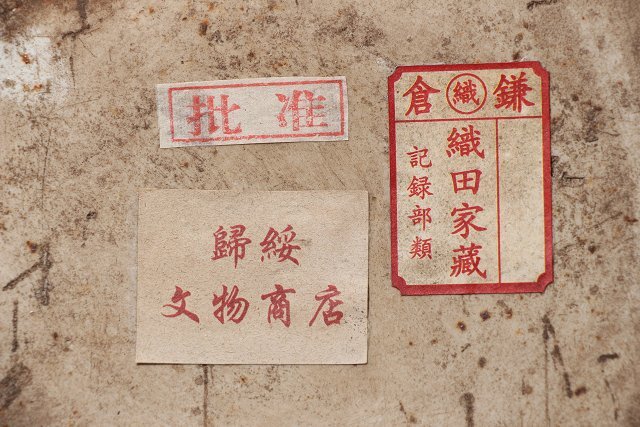 批准
歸綏
文物商店
倉 織 鎌
織田家藏
記録部類